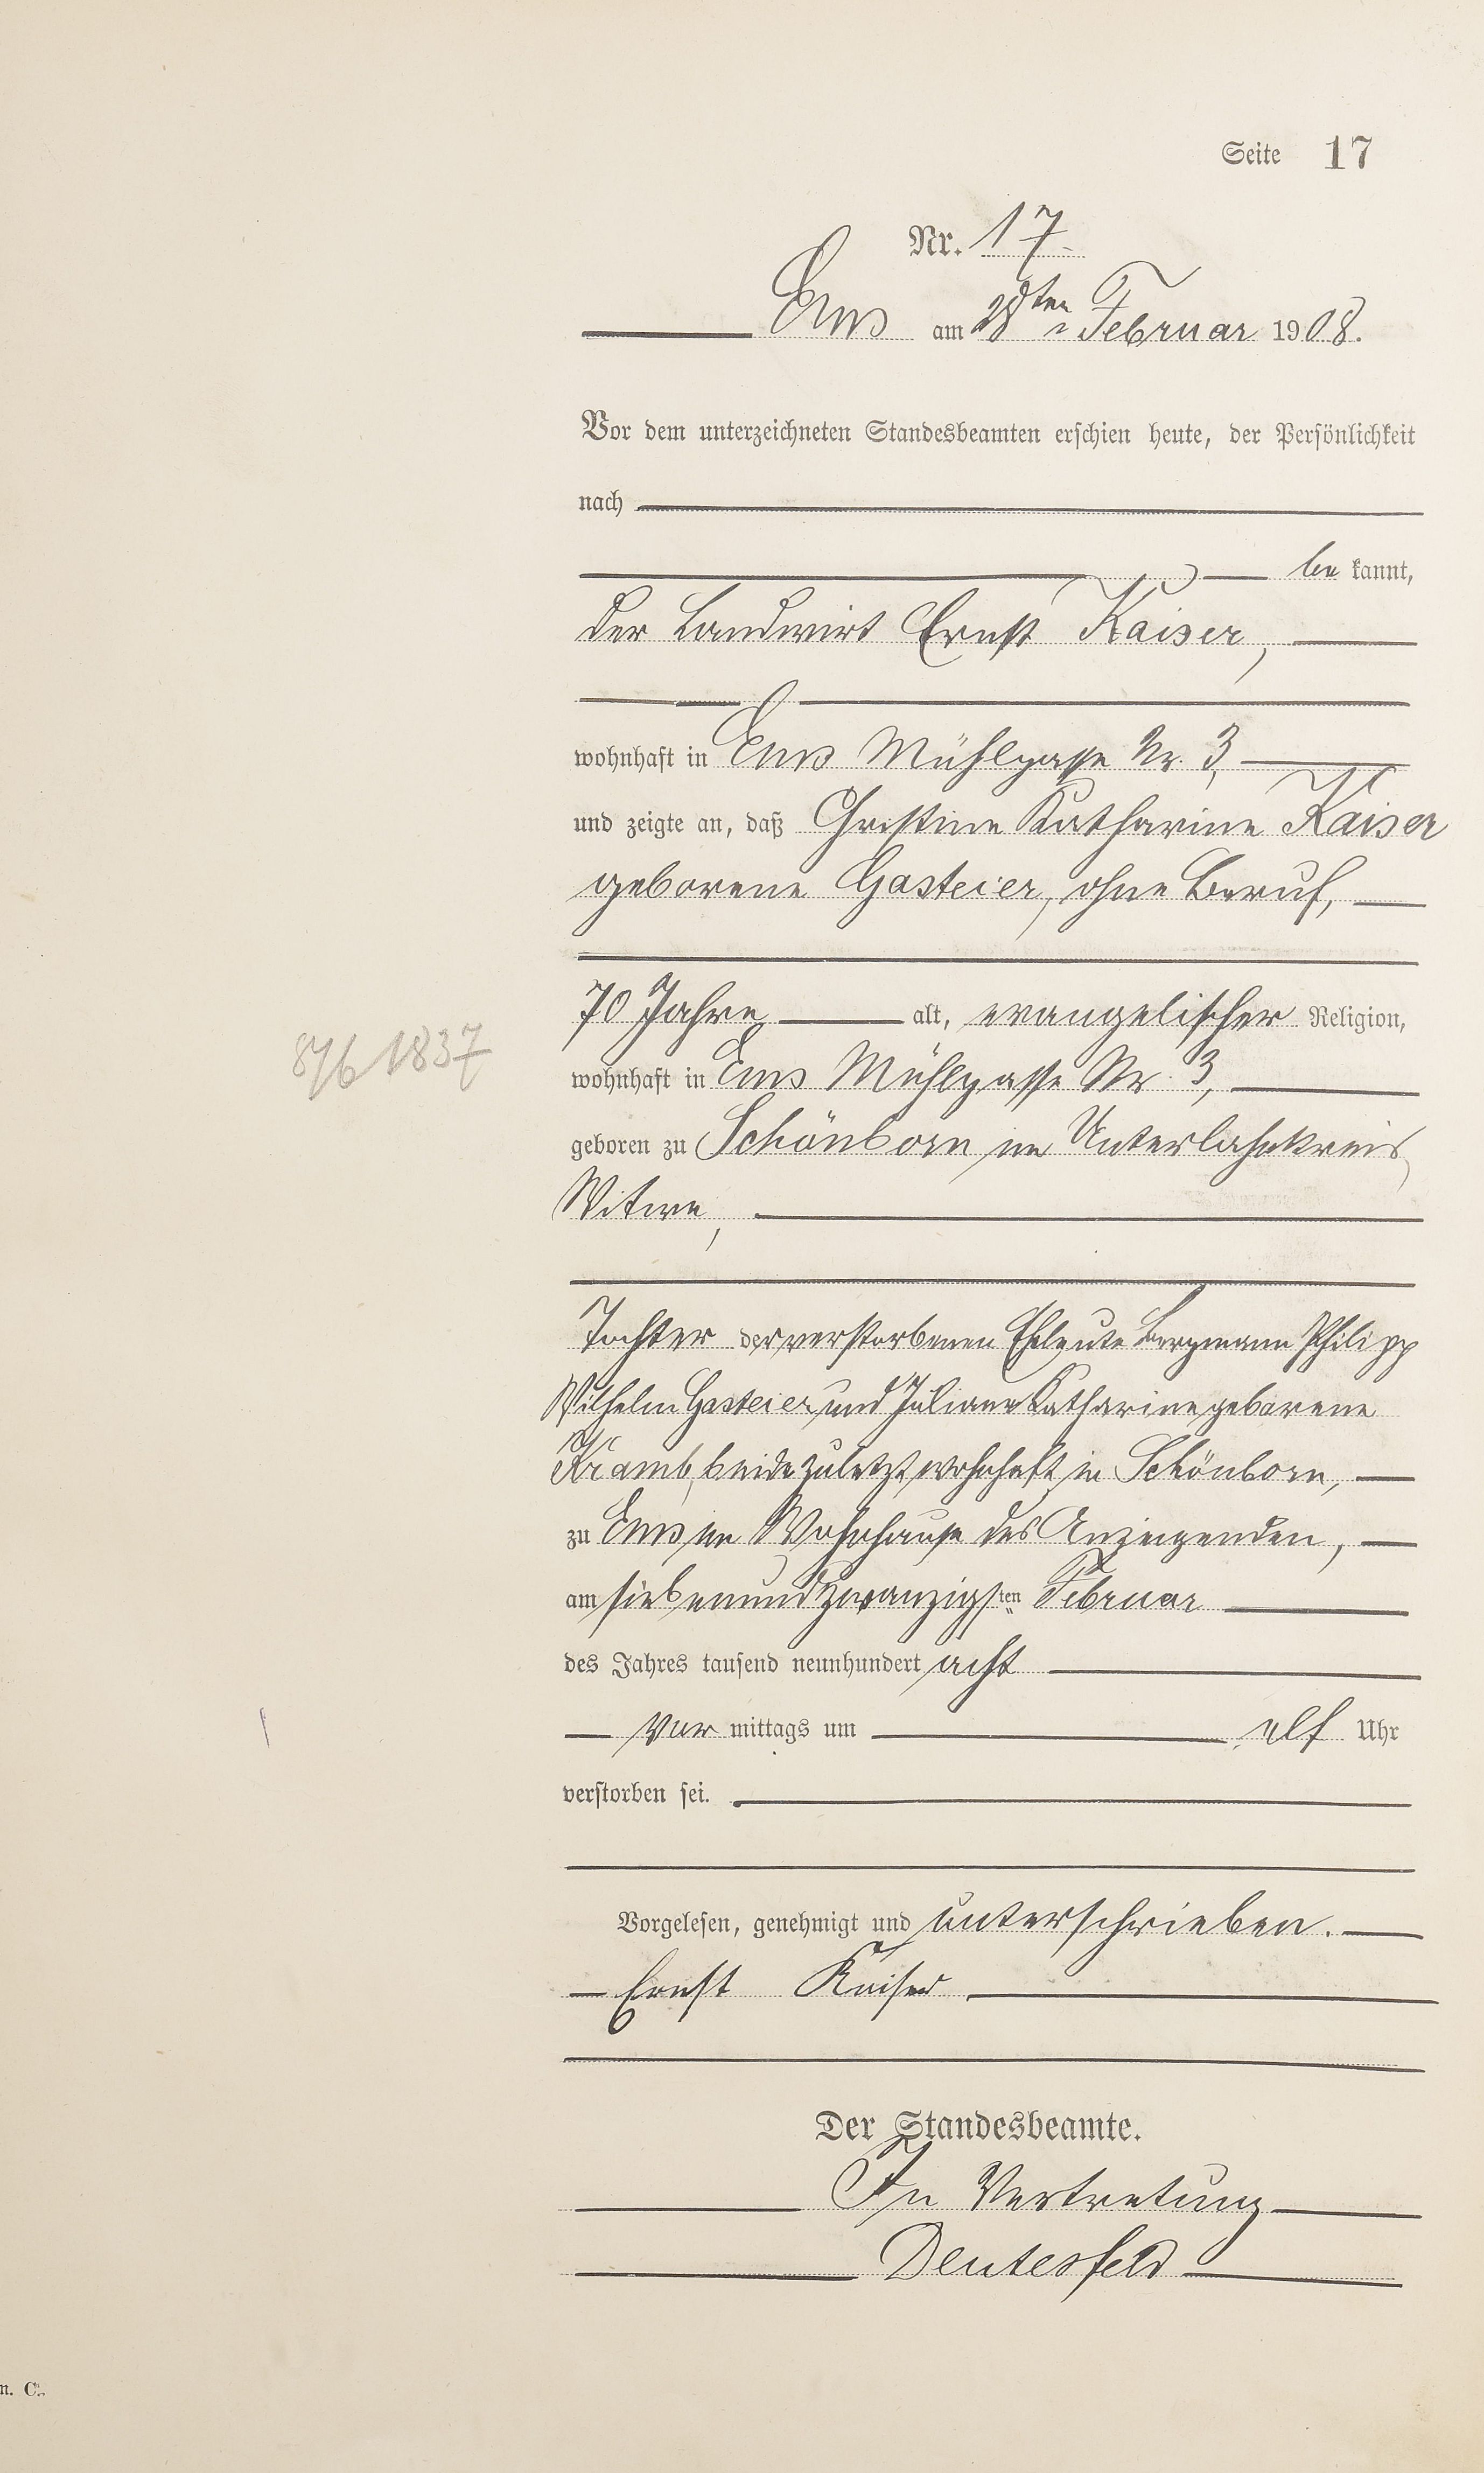 Seite 17
Nr. 17.
Ems am 28ten Februar 1908.
Vor dem unterzeichneten Standesbeamten erschien heute, der Persönlichkeit
nach
be kannt,
der Landwirt Ernst Kaiser,
wohnhaft in Ems Mühlgasse Nr. 3,
und zeigte an, daß Christine Katharine Kaiser
geborene Gasteier, ohne Beruf,
70 Jahre alt, evangelischer Religion,
8/6 1837
wohnhaft in Ems Mühlgasse Nr. 3,
geboren zu Schönborn im Unterlahnkreis,
Witwe,
Tochter der verstorbenen Eheleute Bergmann Philipp
Wilhelm Gasteier und Juliane Katharine geborene
Kramb, beide zuletzt wohnhaft in Schönborn,
zu Ems im Wohnhause des Anzeigenden,
am siebenundzwanzigsten Februar
des Jahres tausend neunhundert acht
vor mittags um elf Uhr
verstorben sei.
Vorgelesen, genehmigt und unterschrieben.
Ernst Kaiser
Der Standesbeamte.
In Vertretung
Deutesfeld
n. C.